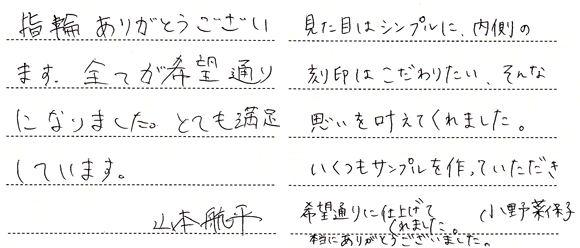 指輪ありがとうござい
ます。全てが希望通り
になりました。とても満足
しています。
山本航平
見た目はシンプルに、内側の
刻印はこだわりたい、そんな
思いを叶えてくれました。
いくつもサンプルを作っていただき
希望通りに仕上げて
くれました。
本当にありがとうございました。
小野菜保子